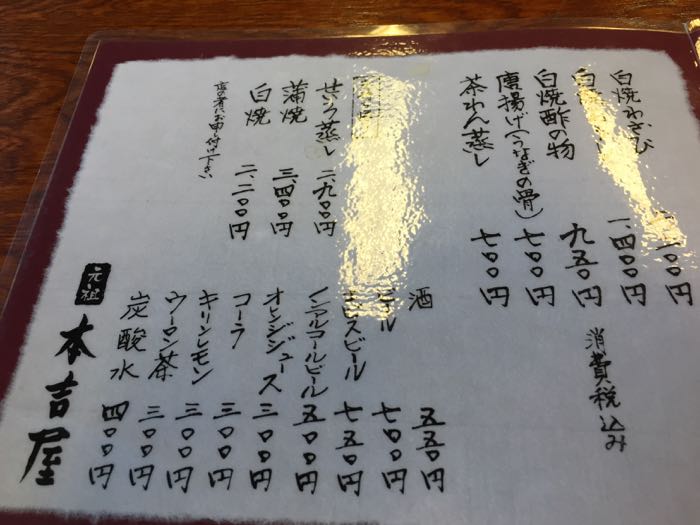 白焼わさび
一、四〇〇円
白焼酢の物 九五〇円
唐揚げ(うなぎの骨) 七〇〇円
茶わん蒸し 七〇〇円
消費税込み
せいろ蒸し 二、九〇〇円
蒲焼 三、四〇〇円
白焼 二、二〇〇円
店の者にお申し付け下さい
酒 五五〇円
七〇〇円
ビール 七五〇円
ノンアルコールビール 五〇〇円
オレンジジュース 三〇〇円
コーラ 三〇〇円
キリンレモン 三〇〇円
ウーロン茶 三〇〇円
炭酸水 四〇〇円
元祖 本吉屋